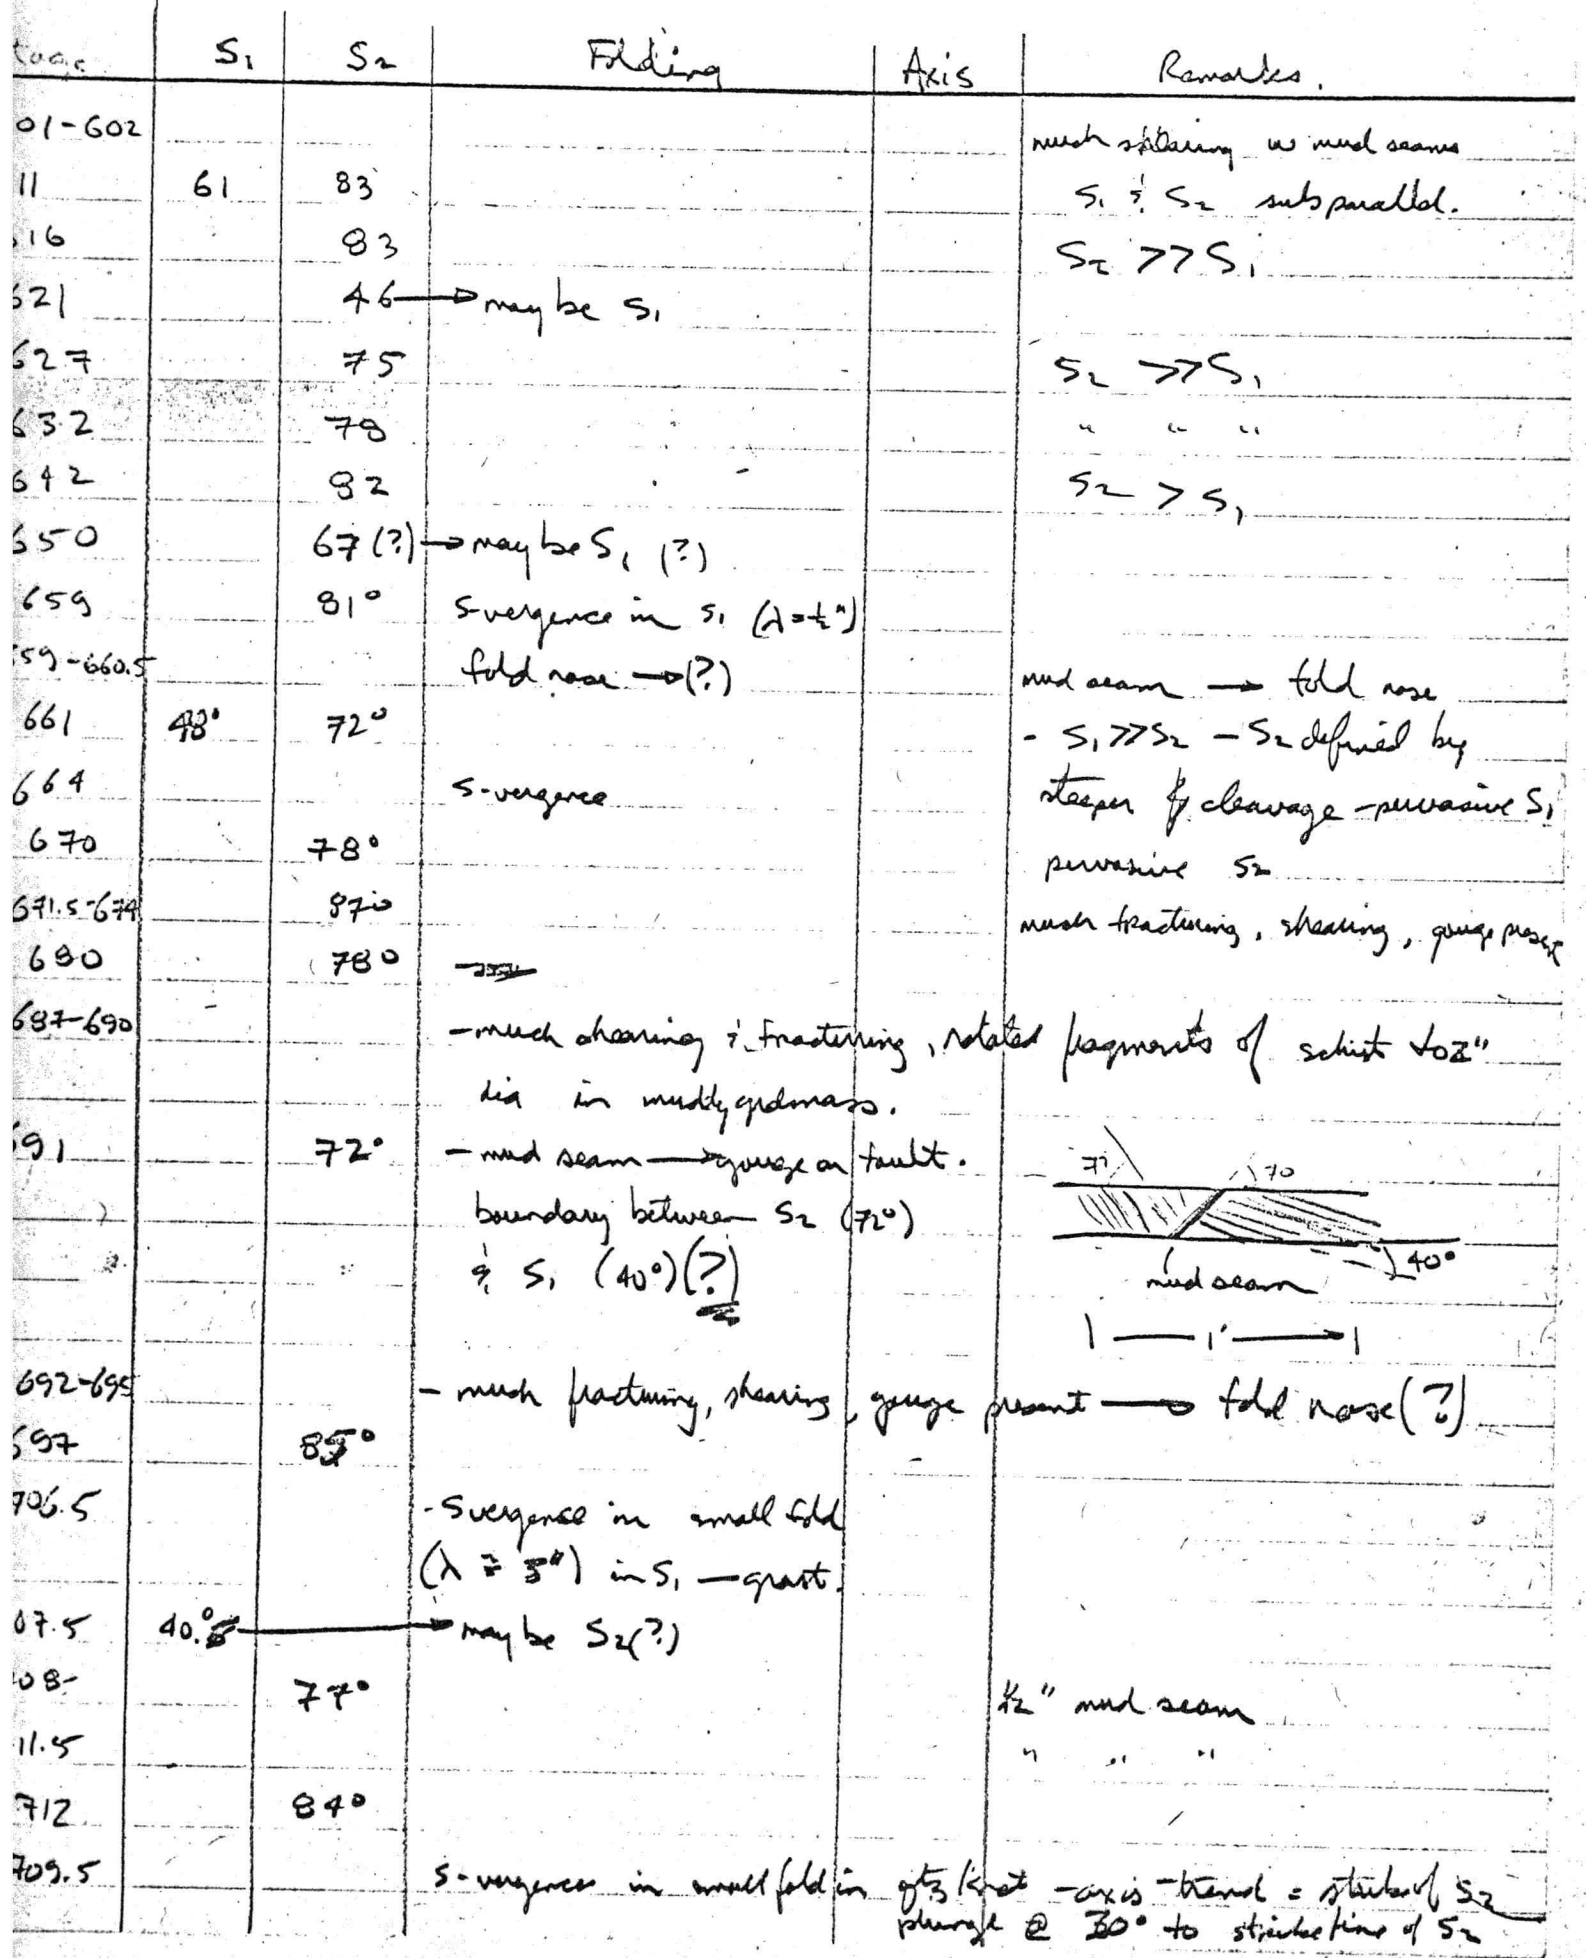 S1 S2 Folding Axis Remarks.
01-602 much shearing w mud seams
11 61 83 S1 & S2 subparallel.
16 83 S2 >> S1
621 46 → may be S1
627 75 S2 >> S1
632 78 " " "
642 82 S2 > S1
650 67 (?) → may be S1 (?)
659 81° S-vergence in S1 (λ = ½")
59-660.5 fold nose → (?) mud seam → fold nose
661 48° 72° - S1 >> S2 - S2 defined by
664 S-vergence steeper cleavage - pervasive S1
670 78° pervasive S2
671.5-674 87° much fracturing, shearing, gouge present
680 78°
687-690 - much shearing & fracturing, rotated fragments of schist to 2"
dia in muddy grdmass.
691 72° - mud seam → gouge on fault.
77 70
boundary between S2 (72°)
& S1 (40°) (?) 40°
mud seam
1'
692-695 - much fracturing, shearing, gouge present → fold nose (?)
697 85°
706.5 - S vergence in small fold
(λ = 3") in S1 -
07.5 40° → may be S2 (?)
08- 77° ½" mud seam
11.5 " " "
712 84°
709.5 S-vergence in small fold in qtz knot - axis - trend = strike of S2
plunge @ 30° to strike line of S2